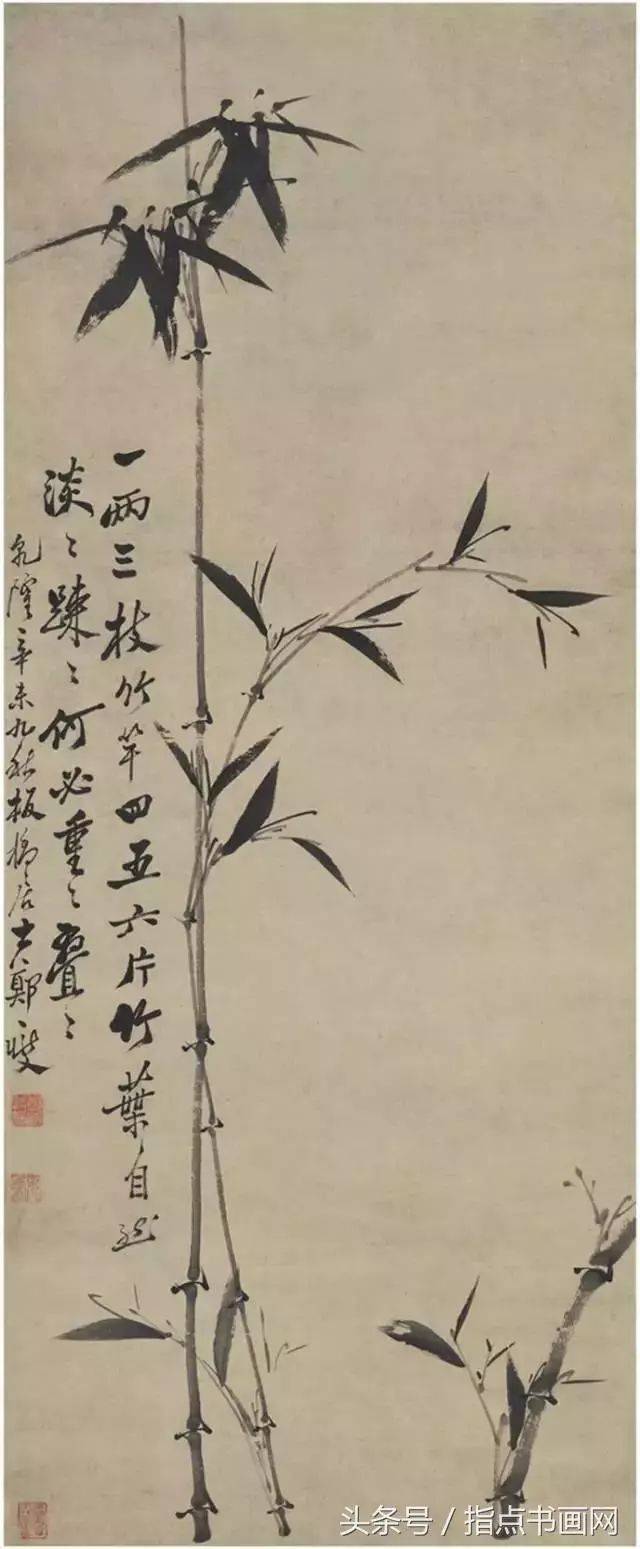 一兩三枝竹竿四五六片竹葉自然
淡〻踈〻何必重〻疊〻
乾隆辛未九秋板橋居士鄭燮
头条号 / 指点书画网